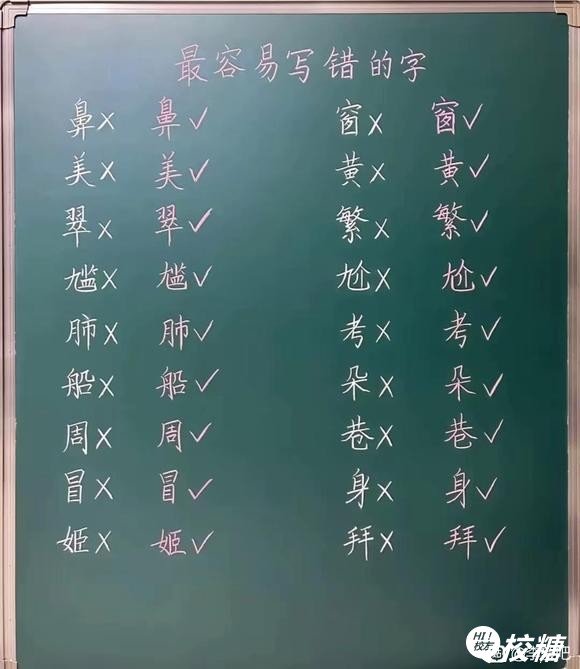 最容易写错的字
鼻× 鼻✓ 窗× 窗✓
美× 美✓ 黄× 黄✓
翠× 翠✓ 繁× 繁✓
尴× 尴✓ 尬× 尬✓
肺× 肺✓ 考× 考✓
船× 船✓ 朵× 朵✓
周× 周✓ 巷× 巷✓
冒× 冒✓ 身× 身✓
姬× 姬✓ 拜× 拜✓
HI！
校友
校糖